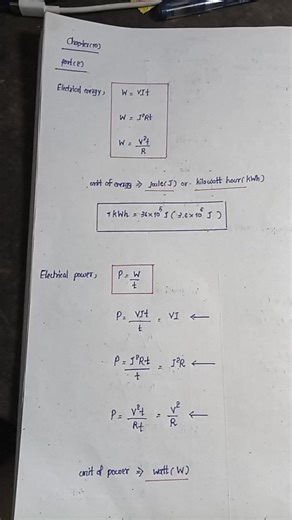 Chapter(10)
part(E)
Electrical energy, W = VIt
W = I²Rt
W = V²t / R
unit of energy ⇒ joule(J) or kilowatt hour(kWh)
1 kWh = 36×10⁵ J (3.6×10⁶ J)
Electrical power, P = W / t
P = VIt / t = VI ←
P = I²Rt / t = I²R ←
P = V²t / Rt = V² / R ←
unit of power ⇒ watt(W)